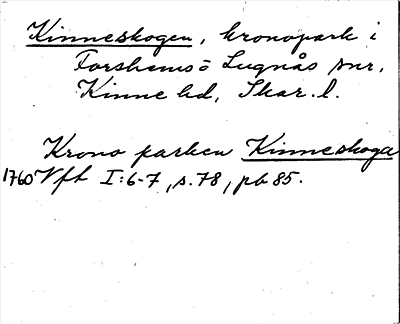 Kinneskogen, kronopark i
Forshems o Lugnås snr,
Kinne hd, Skar. l.
Krono parken Kinneskoga
1760 Vfh I:6-7, s. 78, pb 85.